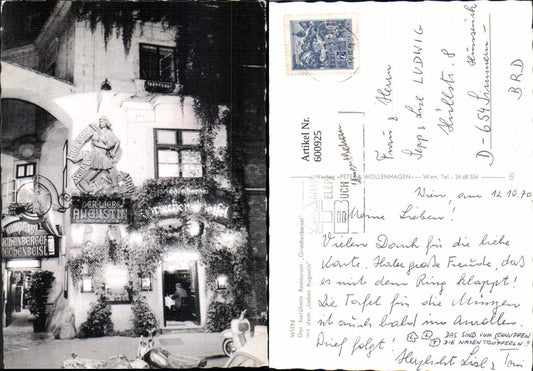 DER LIEBE
AUGUSTIN
Artikel Nr.
600925
Frau & Herrn
Sepp & Lisl LUDWIG
Hüllstr. 8
D - 654 Simmern
Hunsrück
BRD
Verlag "PETER WOLLENHAGEN" — Wien, Tel. 34 68 534
BUCH
WIEN
Das berühmte Restaurant „Griechenbeisl"
mit dem „Lieben Augustin"
Wien, am 12.10.70
Meine Lieben!
Vielen Dank für die liebe
Karte. Habe große Freude, daß
es mit dem Ring klappt!
Die Tafel für die Münzen
ist auch bald im
Brief folgt!
DAS SIND VOM SCHNUPFEN
DIE NASENTRÖPFERLN!!
Herzlichst Lisl &